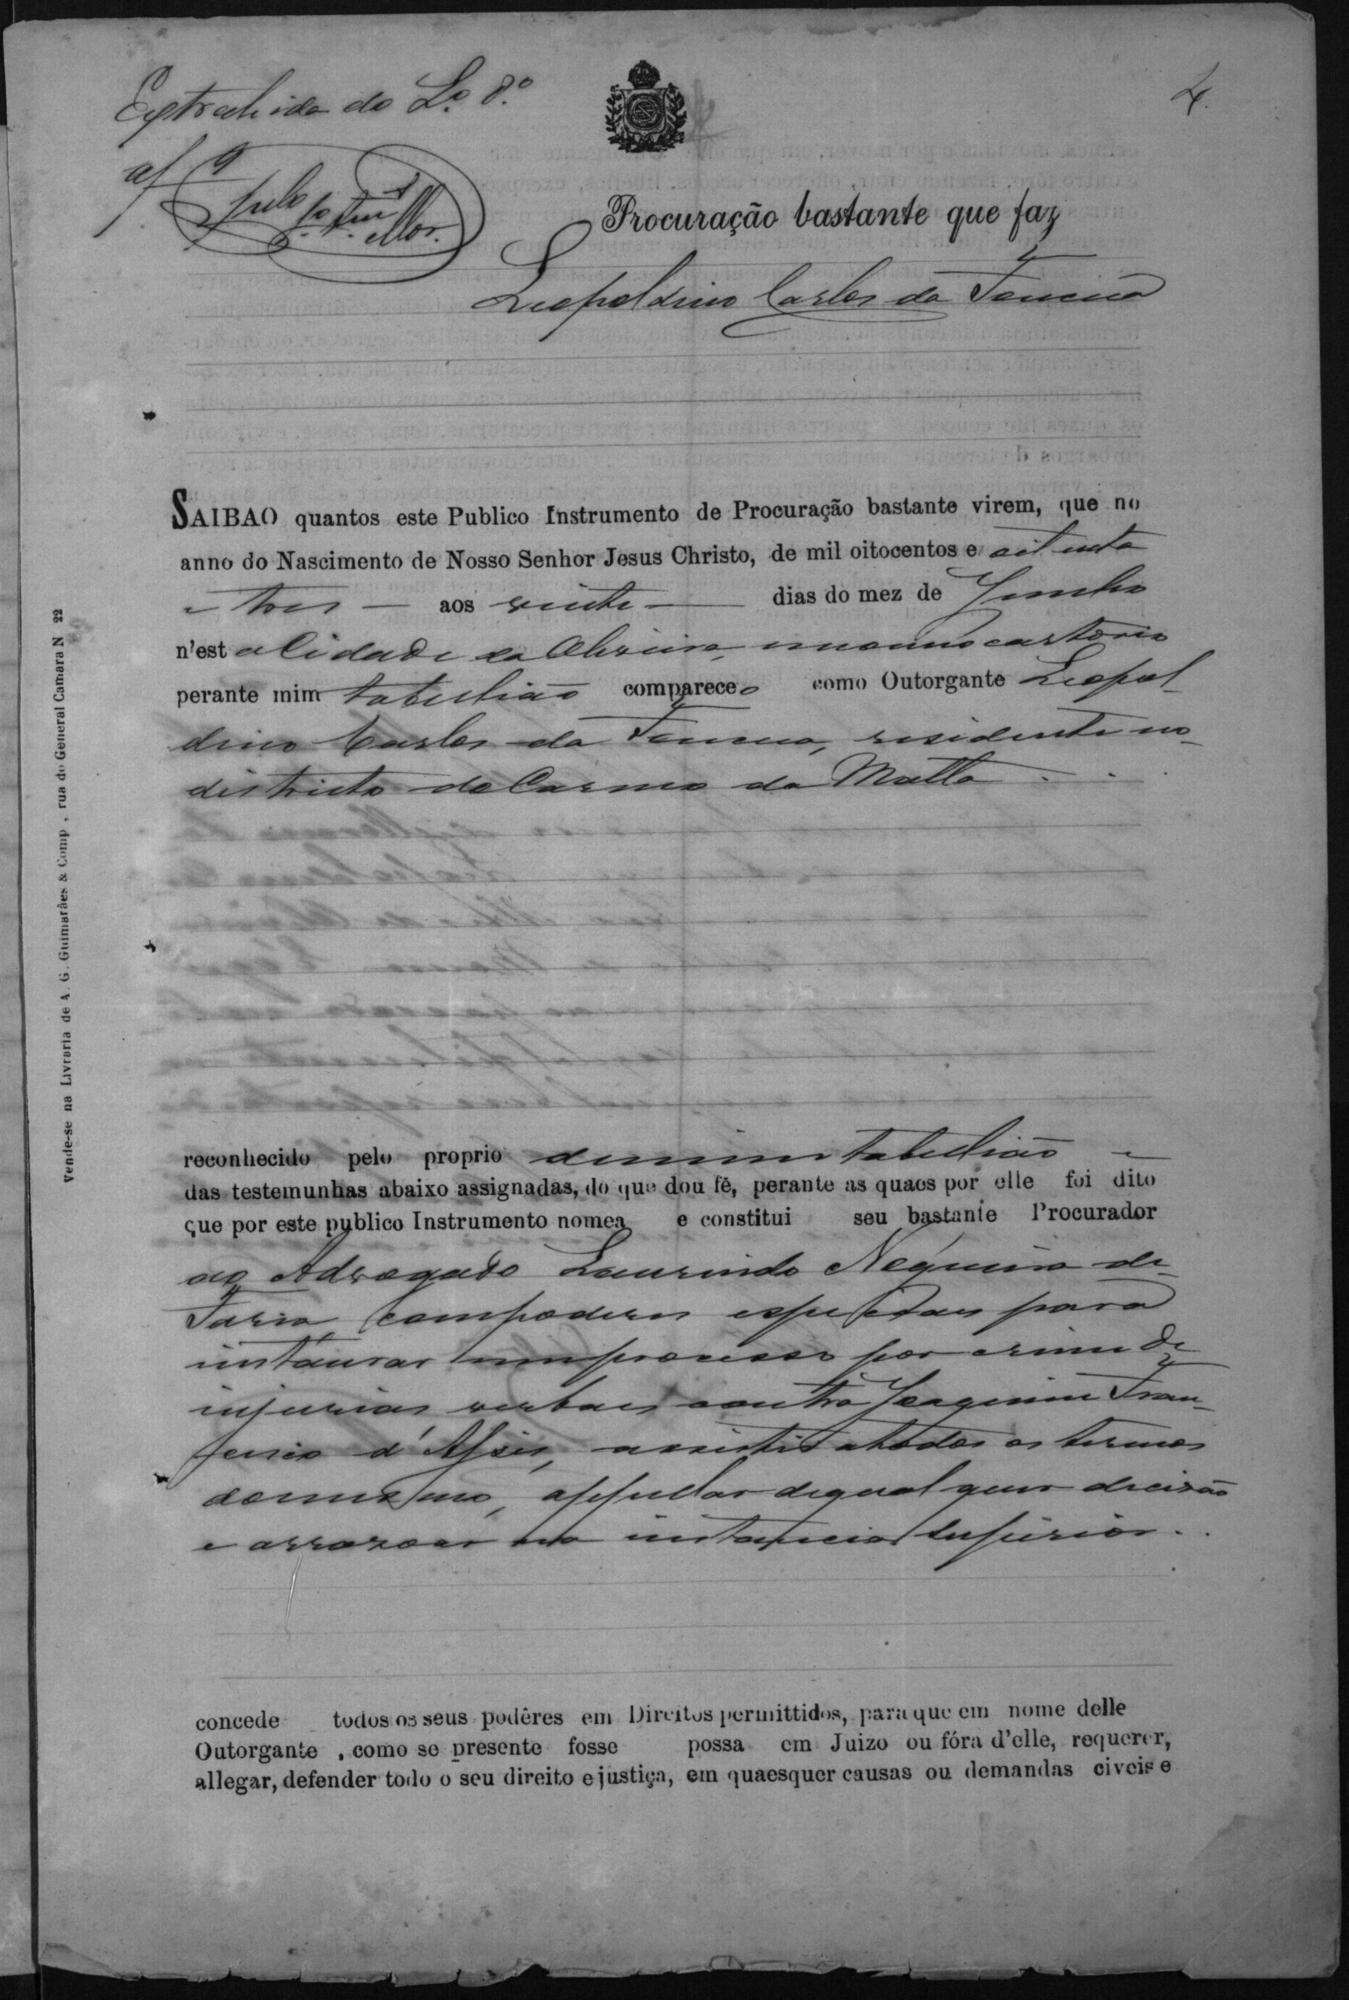 Extrahida do L.º 8.º
4.
af. 9
pelo 1.º
Mor.
Procuração bastante que faz
Leopoldino Carlos da Fonseca
SAIBAO quantos este Publico Instrumento de Procuração bastante virem, que no
anno do Nascimento de Nosso Senhor Jesus Christo, de mil oitocentos e oitenta
e tres — aos vinte — dias do mez de Junho
n'est a Cidade da Oliveira, em meu cartorio
perante mim tabellião compareceo como Outorgante Leopol-
dino Carlos da Fonseca, residente no
districto do Carmo da Matta . . .
reconhecido pelo proprio de mim tabellião e
das testemunhas abaixo assignadas, do que dou fé, perante as quaes por elle foi dito
que por este publico Instrumento nomea e constitui seu bastante Procurador
ao Advogado Laurindo Nogueira de
Faria, com poderes especiaes para
instaurar um processo por crime de
injurias verbaes contra Joaquim Fran-
d'Assis, assistir a todos os termos
do mesmo, appellar de qual quer decizão
e arrazoar na instancia superior. .
concede todos os seus podêres em Direitos permittidos, para que em nome delle
Outorgante , como se presente fosse possa em Juizo ou fóra d'elle, requerer,
allegar, defender todo o seu direito e justiça, em quaesquer causas ou demandas civeis e
Vende-se na Livraria de A. G. Guimarães & Comp , rua do General Camara N 22